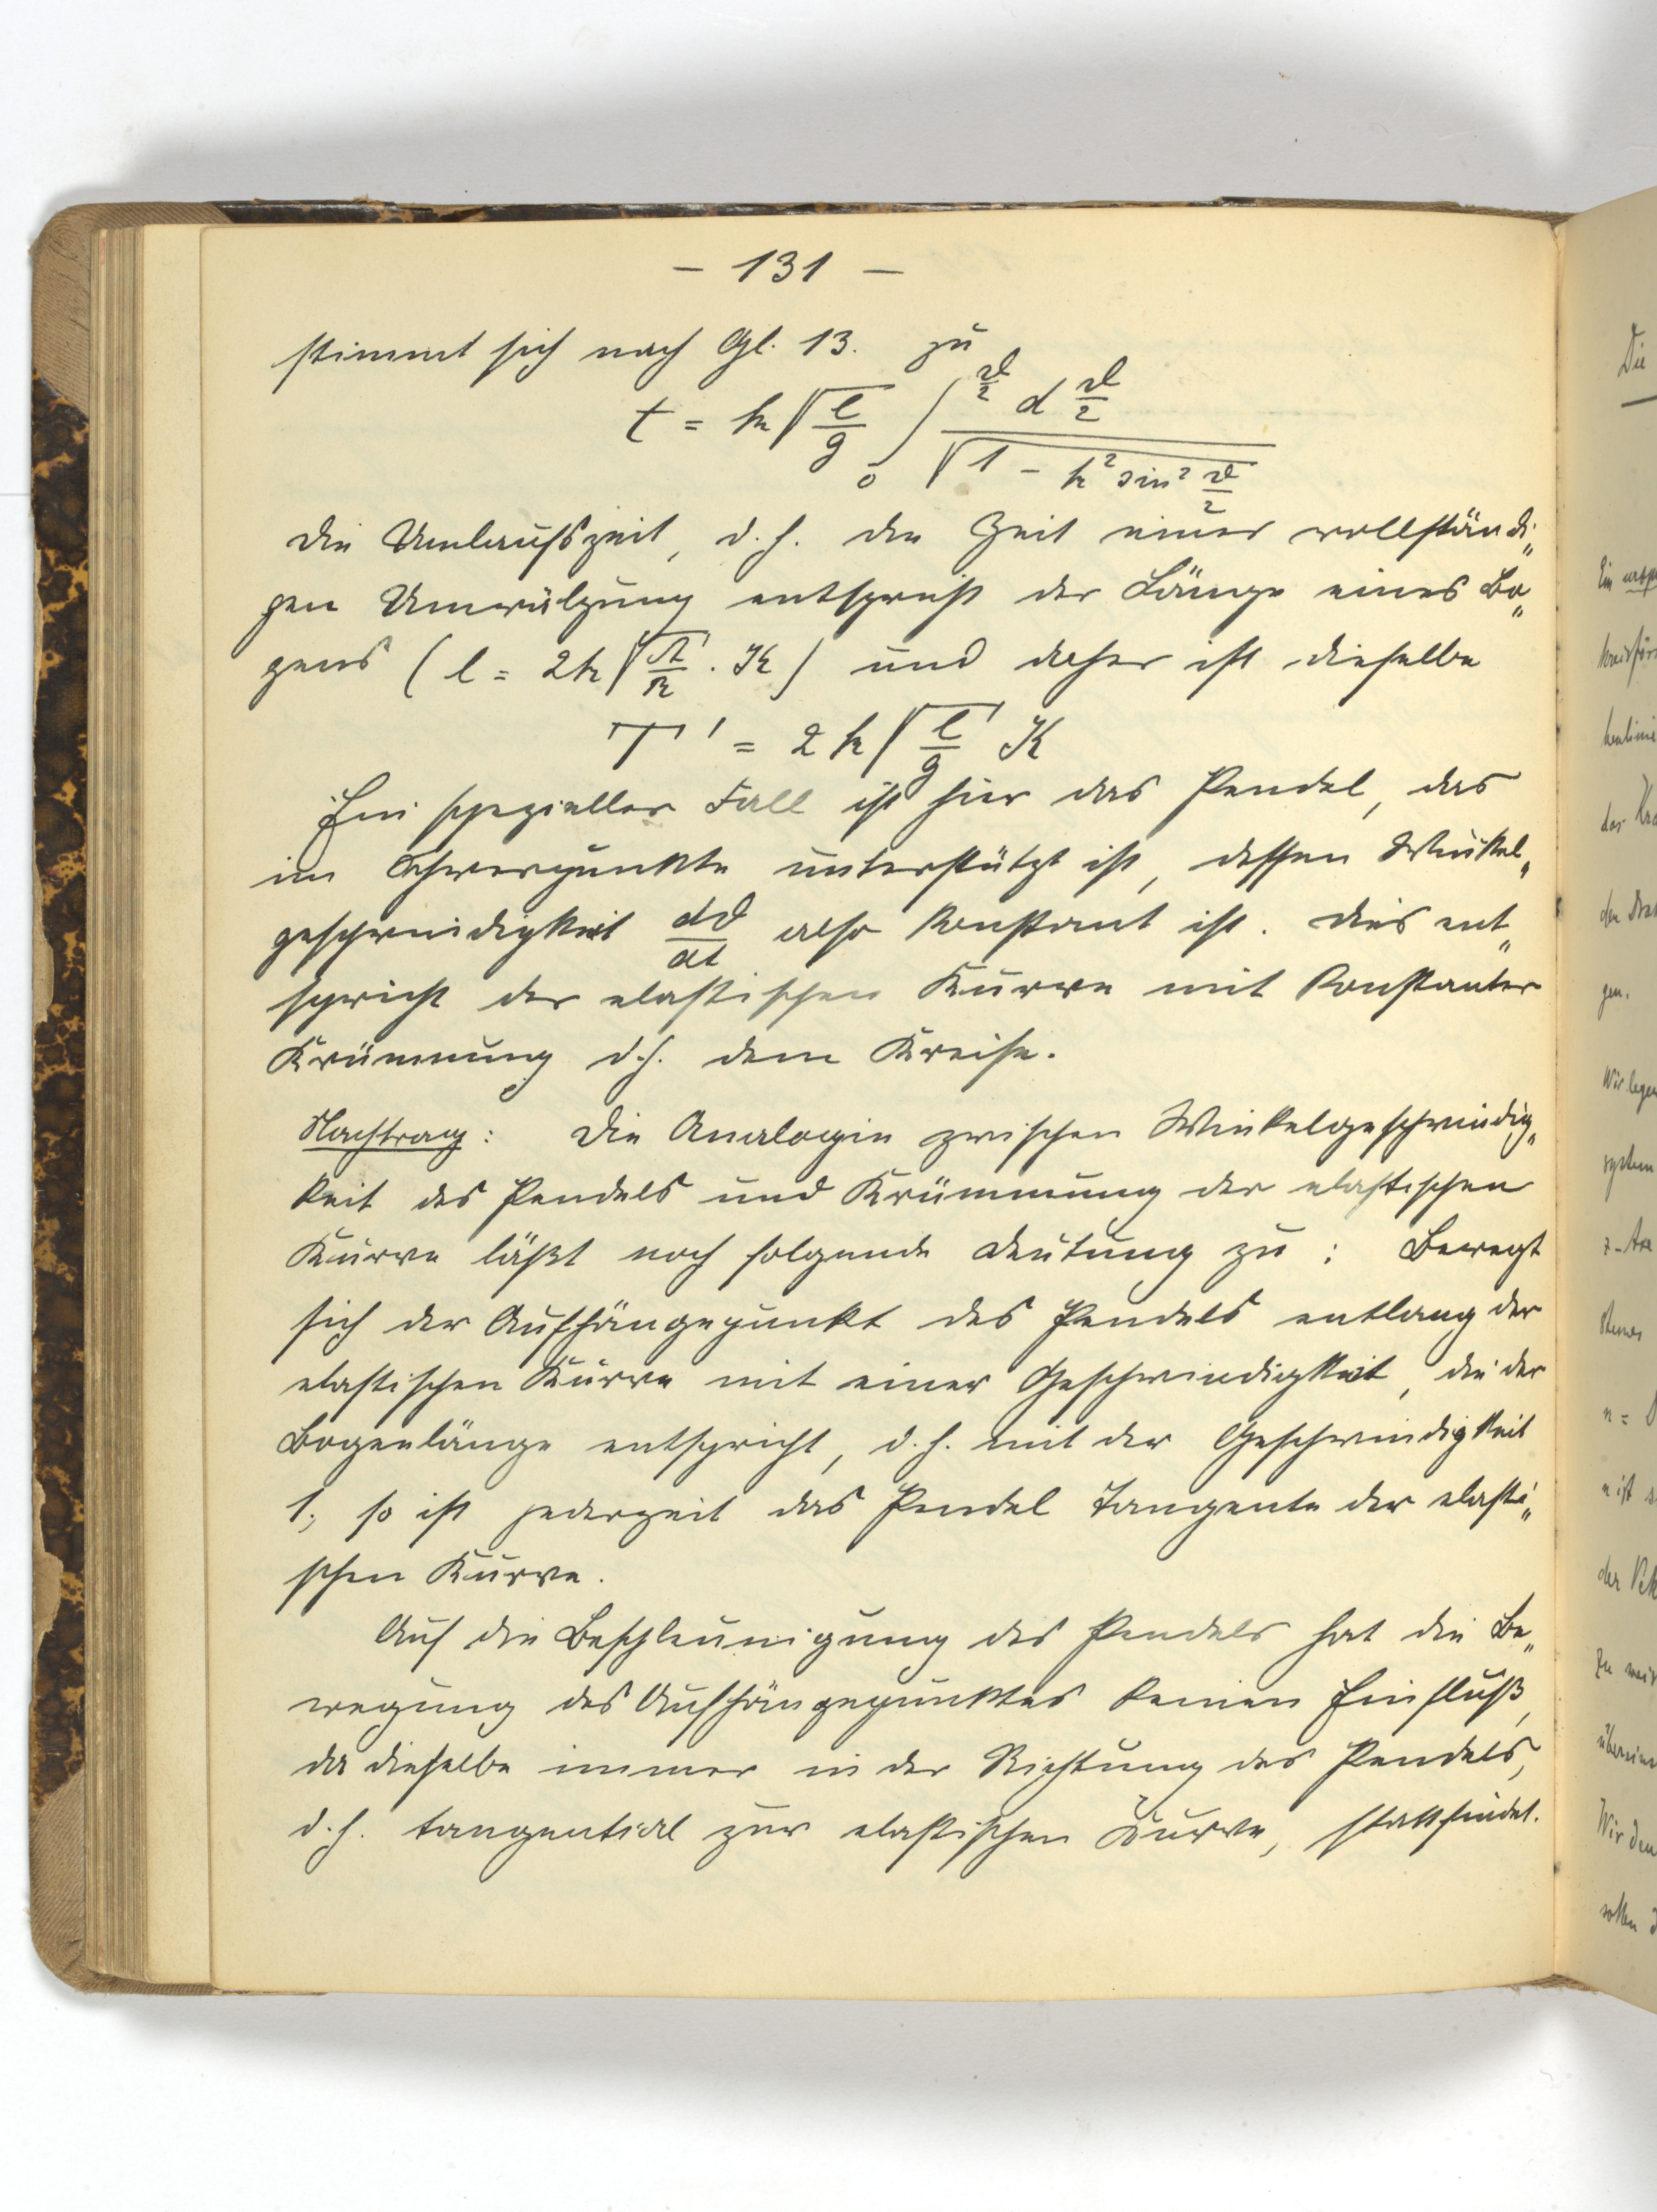 – 131 –
stimmt sich nach Gl. 13. zu
t = k √(l/g) ∫₀^(ϑ/2) d ϑ/2 / √(1 – k² sin² ϑ/2)
Die Umlaufszeit, d. h. die Zeit einer vollständi„
gen Umwälzung entspricht der Länge eines Bo„
gens ( l = 2k √(A/R) . K ) und daher ist dieselbe
T' = 2 k √(l/g) K
Ein spezieller Fall ist hier das Pendel, das
im Schwerpunkte unterstützt ist, dessen Winkel„
geschwindigkeit dϑ/dt also konstant ist. Dies ent„
spricht der elastischen Kurve mit konstanter
Krümmung d. h. dem Kreise.
Nachtrag: Die Analogie zwischen Winkelgeschwindig„
keit des Pendels und Krümmung der elastischen
Kurve läßt noch folgende Deutung zu : Bewegt
sich der Aufhängepunkt des Pendels entlang der
elastischen Kurve mit einer Geschwindigkeit, die der
Bogenlänge entspricht, d. h. mit der Geschwindigkeit
1, so ist jederzeit das Pendel Tangente der elasti„
schen Kurve.
Auf die Beschleunigung des Pendels hat die Be„
wegung des Aufhängepunktes keinen Einfluß,
da dieselbe immer in der Richtung des Pendels,
d. h. tangential zur elastischen Kurve, stattfindet.
Die
Ein
das
den
gen.
Wir legen
system
z-Axe
n =
n ist
der
Zu
Wir den
sollen